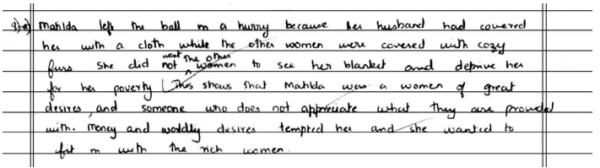 9) a) Mahilda left the ball in a hurry because her husband had covered
her with a cloth while the other women were covered with cozy
furs She did not want the other women to see her blanket and deprive her
for her poverty This shows that Mahilda was a women of great
desires, and someone who does not appreciate what they are provided
with. Money and worldly desires tempted her and she wanted to
fit in with the rich women.